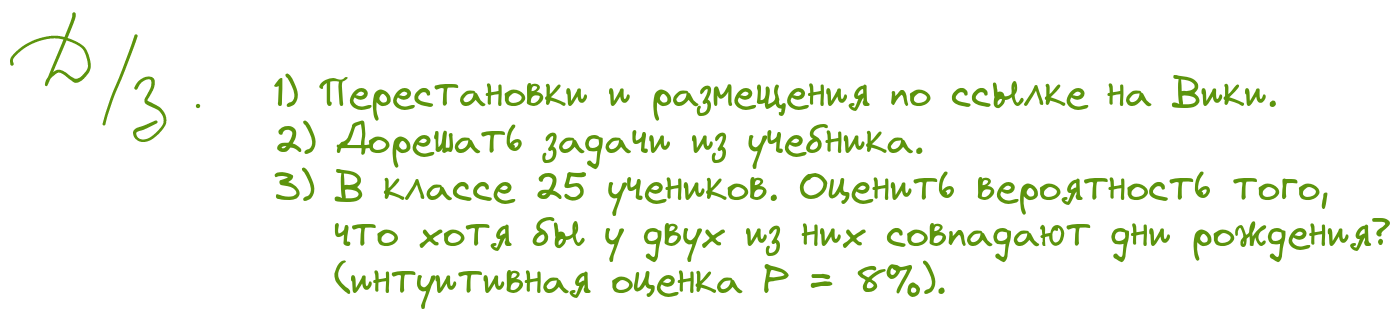 Д/З.
1) Перестановки и размещения по ссылке на Вики.
2) Дорешать задачи из учебника.
3) В классе 25 учеников. Оценить вероятность того,
что хотя бы у двух из них совпадают дни рождения?
(интуитивная оценка P = 8%).